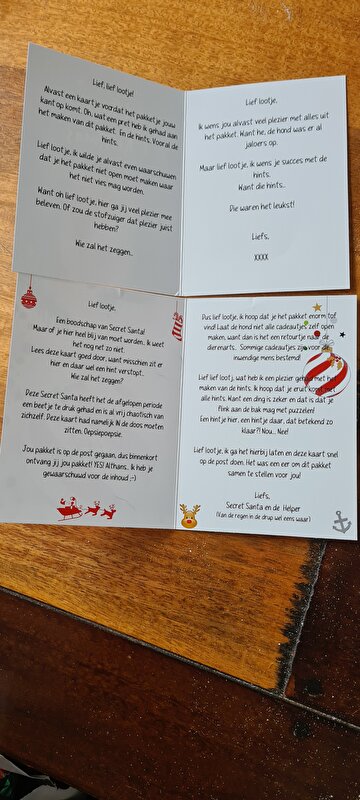 Lief, lief lootje!
Alvast een kaartje voordat het pakketje jouw
kant op komt. Oh, wat een pret heb ik gehad aan
het maken van dit pakket. En de hints. Vooral de
hints.
Lief lootje, ik wilde je alvast even waarschuwen
dat je het pakket niet open moet maken waar
het niet vies mag worden.
Want oh lief lootje, hier ga jij veel plezier mee
beleven. Of zou de stofzuiger dat plezier juist
hebben?
Wie zal het zeggen..
Lief lootje,
Ik wens jou alvast veel plezier met alles uit
het pakket. Want he, de hond was er al
jaloers op.
Maar lief lootje, ik wens je succes met de
hints.
Want die hints..
Die waren het leukst!
Liefs,
XXXX
Lief lootje,
Een boodschap van Secret Santa!
Maar of je hier heel blij van moet worden.. Ik weet
het nog net zo niet.
Lees deze kaart goed door, want misschien zit er
hier en daar wel een hint verstopt..
Wie zal het zeggen?
Deze Secret Santa heeft het de afgelopen periode
een beetje te druk gehad en is al vrij chaotisch van
zichzelf. Deze kaart had namelijk IN de doos moeten
zitten. Oepsiepoepsie.
Jou pakket is op de post gegaan, dus binnenkort
ontvang jij jou pakket! YES! Althans.. Ik heb je
gewaarschuwd voor de inhoud ;-)
Dus lief lootje, ik hoop dat je het pakket enorm tof
vind! Laat de hond niet alle cadeautjes zelf open
maken, want dan is het een retourtje naar de
dierenarts.. Sommige cadeautjes zijn voor
inwendige mens bestemd!
Lief lief lootj, wat heb ik een plezier gehad met het
maken van de hints. Ik hoop dat je eruit komt met
alle hints. Want een ding is zeker en dat is dat je
flink aan de bak mag met puzzelen!
Een hintje hier, een hintje daar, dat betekend zo
klaar?! Nou... Nee!
Lief lootje, ik ga het hierbij laten en deze kaart snel
op de post doen. Het was een eer om dit pakket
samen te stellen voor jou!
Liefs,
Secret Santa en de Helper
(Van de regen in de drup wel eens waar)